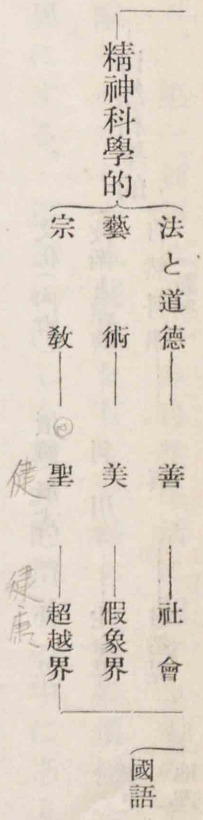 精神科學的
法と道德——善——社會
藝術——美——假象界
宗教——聖——超越界
國語
健
健康